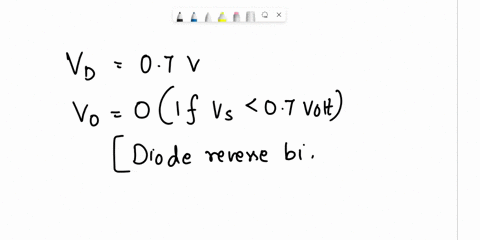 V_D = 0.7 V
V_O = 0 (If V_s < 0.7 Volt)
[Diode reverse bi.